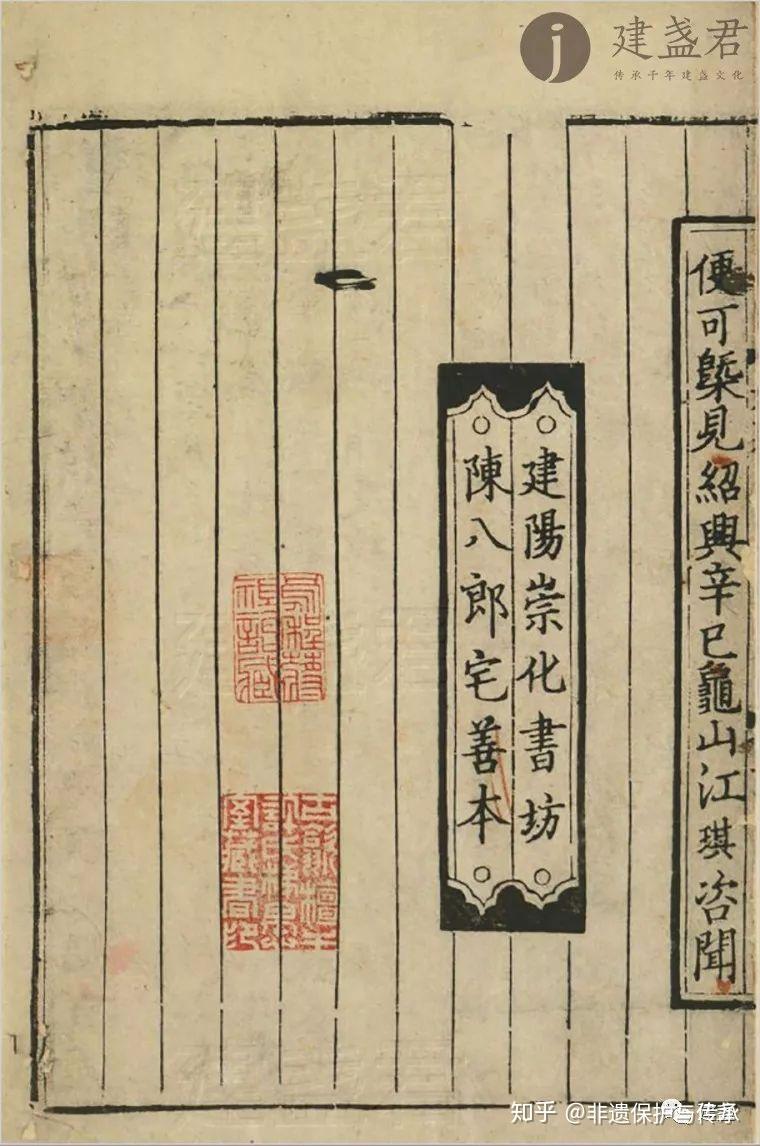 建盏君
传承千年建盏文化
便可槩見紹興辛巳龜山江琪咨聞
建陽崇化書坊
陳八郎宅善本
知乎 @非遗保护与传承